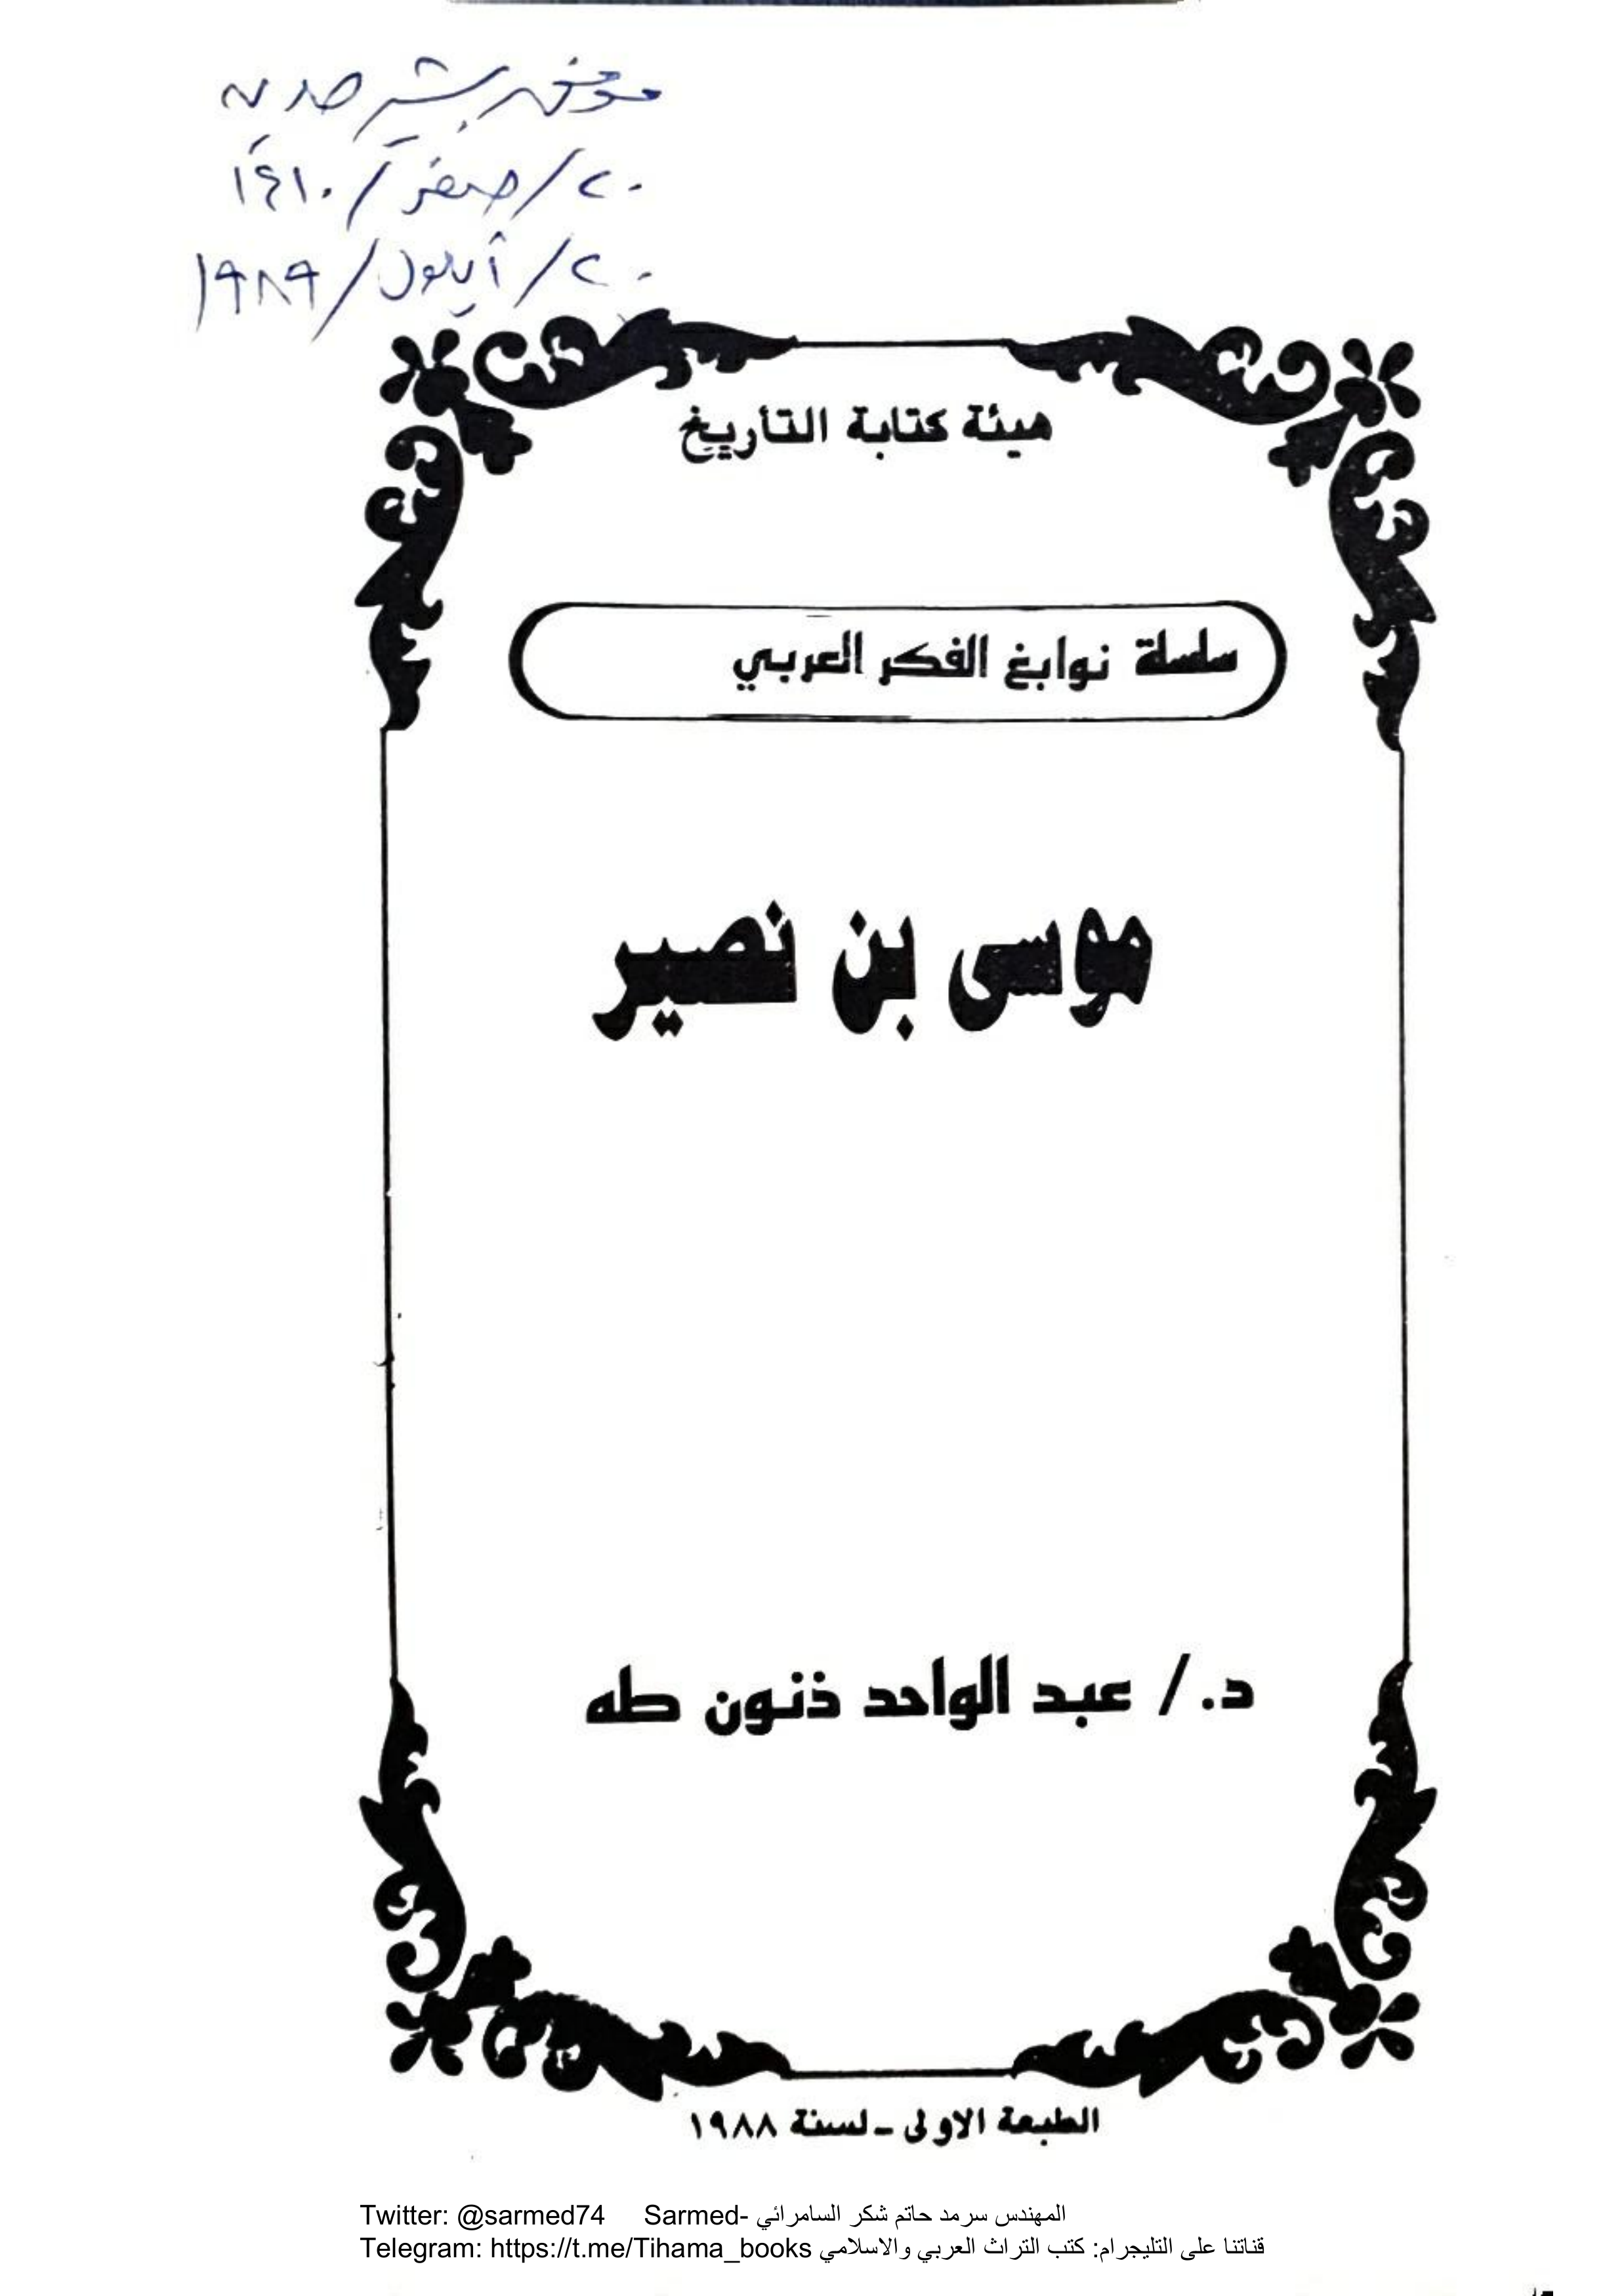 موفق بشير
٢٠/صفر/١٤١٠
٢٠/أيلول/١٩٨٩
هيئة كتابة التأريخ
سلسلة نوابغ الفكر العربي
موسى بن نصير
د./ عبد الواحد ذنون طه
الطبعة الاولى ـ لسنة ١٩٨٨
Twitter: @sarmed74 Sarmed- المهندس سرمد حاتم شكر السامرائي
Telegram: https://t.me/Tihama_books قناتنا على التليجرام: كتب التراث العربي والاسلامي